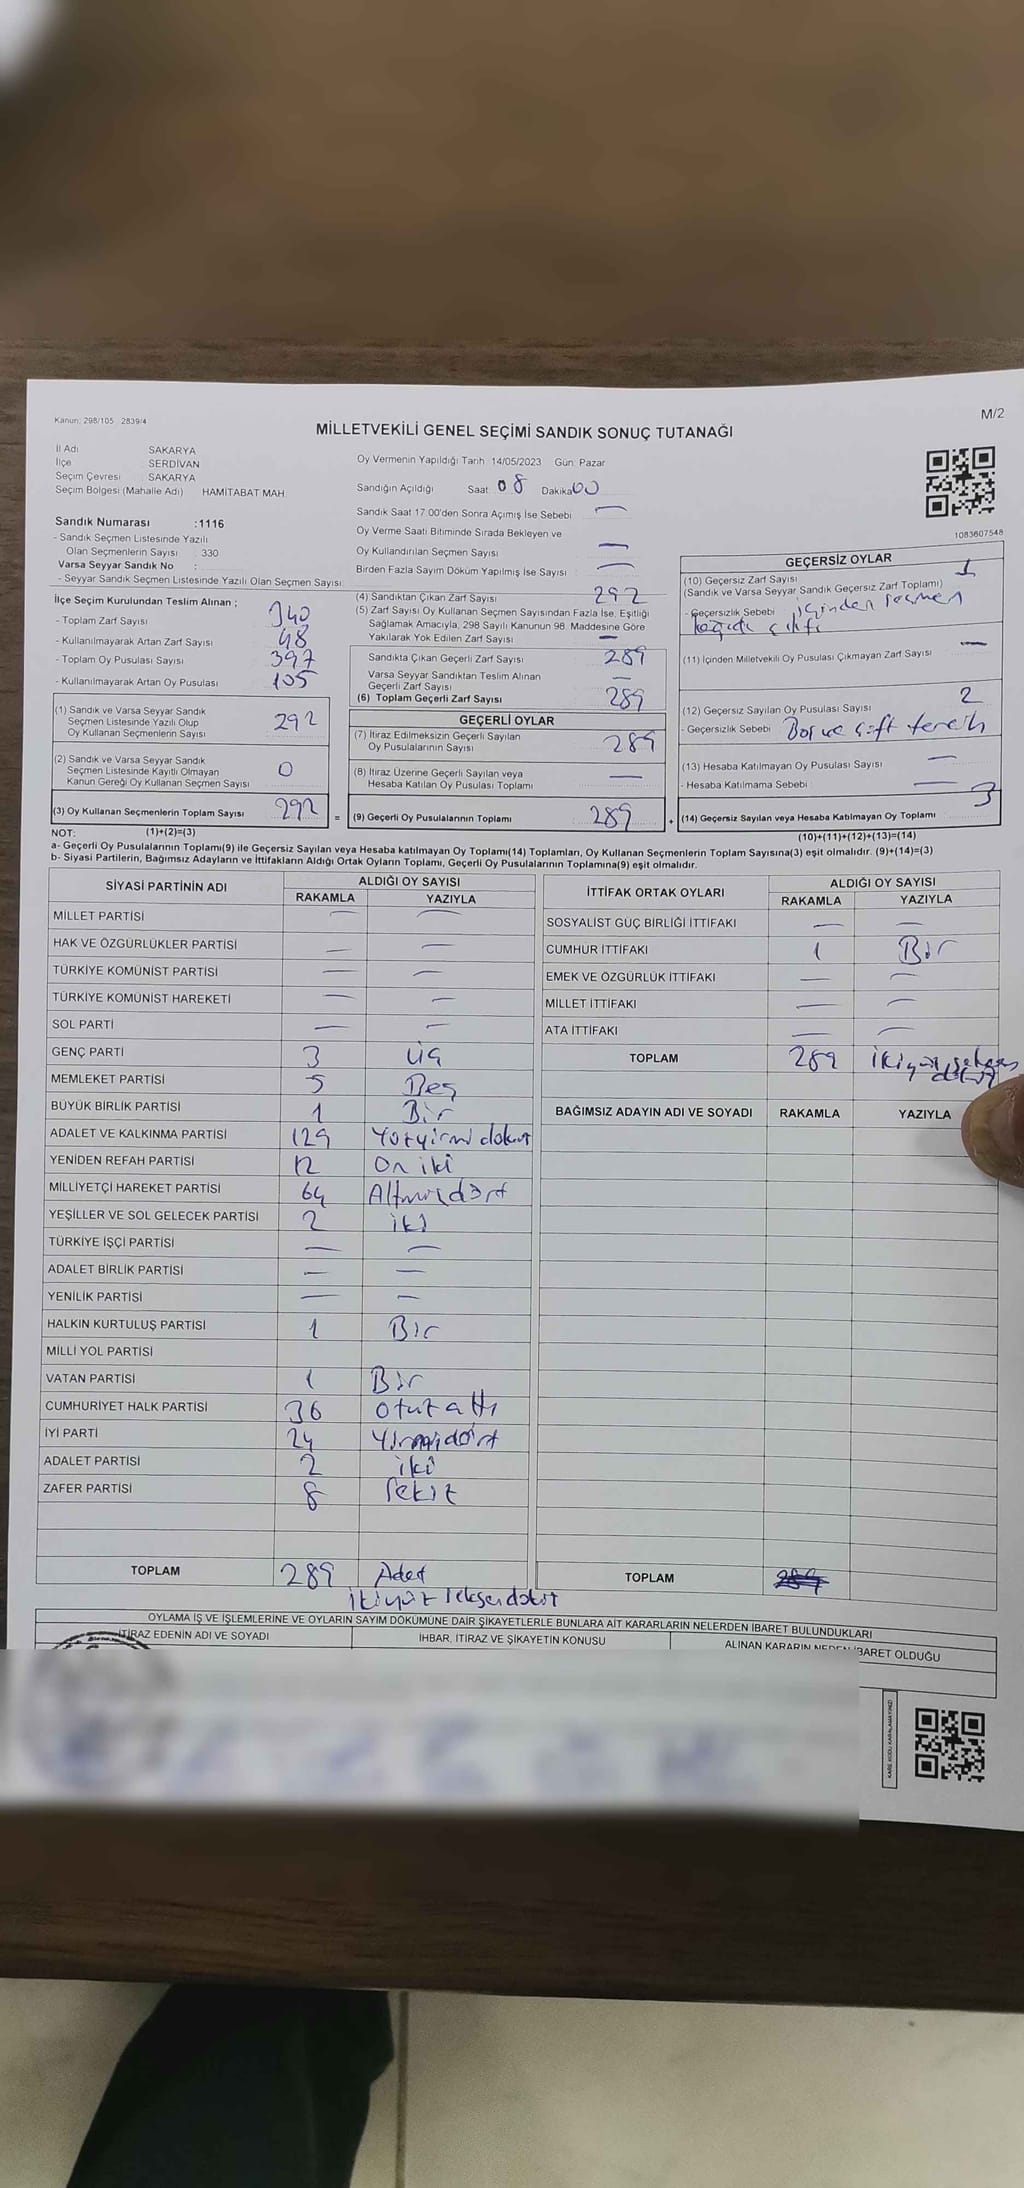 Kanun: 298/105 2839/4
M/2
MİLLETVEKİLİ GENEL SEÇİMİ SANDIK SONUÇ TUTANAĞI
İl Adı SAKARYA
İlçe SERDİVAN
Seçim Çevresi SAKARYA
Seçim Bölgesi (Mahalle Adı) HAMİTABAT MAH
Sandık Numarası :1116
- Sandık Seçmen Listesinde Yazılı
Olan Seçmenlerin Sayısı : 330
Varsa Seyyar Sandık No :
- Seyyar Sandık Seçmen Listesinde Yazılı Olan Seçmen Sayısı:
Oy Vermenin Yapıldığı Tarih 14/05/2023 Gün Pazar
Sandığın Açıldığı Saat 08 Dakika 00
Sandık Saat 17.00'den Sonra Açımış İse Sebebi —
Oy Verme Saati Bitiminde Sırada Bekleyen ve
Oy Kullandırılan Seçmen Sayısı —
Birden Fazla Sayım Döküm Yapılmış İse Sayısı —
1083607548
İlçe Seçim Kurulundan Teslim Alınan ;
- Toplam Zarf Sayısı 340
- Kullanılmayarak Artan Zarf Sayısı 48
- Toplam Oy Pusulası Sayısı 397
- Kullanılmayarak Artan Oy Pusulası 105
(1) Sandık ve Varsa Seyyar Sandık
Seçmen Listesinde Yazılı Olup
Oy Kullanan Seçmenlerin Sayısı 292
(2) Sandık ve Varsa Seyyar Sandık
Seçmen Listesinde Kayıtlı Olmayan
Kanun Gereği Oy Kullanan Seçmen Sayısı 0
(3) Oy Kullanan Seçmenlerin Toplam Sayısı 292 =
(4) Sandıktan Çıkan Zarf Sayısı 292
(5) Zarf Sayısı Oy Kullanan Seçmen Sayısından Fazla İse, Eşitliği
Sağlamak Amacıyla, 298 Sayılı Kanunun 98. Maddesine Göre
Yakılarak Yok Edilen Zarf Sayısı —
Sandıkta Çıkan Geçerli Zarf Sayısı 289
Varsa Seyyar Sandıktan Teslim Alınan
Geçerli Zarf Sayısı —
(6) Toplam Geçerli Zarf Sayısı 289
GEÇERLİ OYLAR
(7) İtiraz Edilmeksizin Geçerli Sayılan
Oy Pusulalarının Sayısı 289
(8) İtiraz Üzerine Geçerli Sayılan veya
Hesaba Katılan Oy Pusulası Toplamı —
(9) Geçerli Oy Pusulalarının Toplamı 289 +
GEÇERSİZ OYLAR
(10) Geçersiz Zarf Sayısı 1
(Sandık ve Varsa Seyyar Sandık Geçersiz Zarf Toplamı)
- Geçersizlik Sebebi içinden seçmen
(11) İçinden Milletvekili Oy Pusulası Çıkmayan Zarf Sayısı —
(12) Geçersiz Sayılan Oy Pusulası Sayısı 2
- Geçersizlik Sebebi Boş ve çift tercih
(13) Hesaba Katılmayan Oy Pusulası Sayısı —
- Hesaba Katılmama Sebebi —
(14) Geçersiz Sayılan veya Hesaba Katılmayan Oy Toplamı 3
NOT: (1)+(2)=(3)
(10)+(11)+(12)+(13)=(14)
a- Geçerli Oy Pusulalarının Toplamı(9) ile Geçersiz Sayılan veya Hesaba katılmayan Oy Toplamı(14) Toplamları, Oy Kullanan Seçmenlerin Toplam Sayısına(3) eşit olmalıdır. (9)+(14)=(3)
b- Siyasi Partilerin, Bağımsız Adayların ve İttifakların Aldığı Ortak Oyların Toplamı, Geçerli Oy Pusulalarının Toplamına(9) eşit olmalıdır.
SİYASİ PARTİNİN ADI ALDIĞI OY SAYISI
RAKAMLA YAZIYLA
MİLLET PARTİSİ — —
HAK VE ÖZGÜRLÜKLER PARTİSİ — —
TÜRKİYE KOMÜNİST PARTİSİ — —
TÜRKİYE KOMÜNİST HAREKETİ — —
SOL PARTİ — —
GENÇ PARTİ 3 üç
MEMLEKET PARTİSİ 5 Beş
BÜYÜK BİRLİK PARTİSİ 1 Bir
ADALET VE KALKINMA PARTİSİ 129 Yüzyirmi dokuz
YENİDEN REFAH PARTİSİ 12 On iki
MİLLİYETÇİ HAREKET PARTİSİ 64 Altmışdört
YEŞİLLER VE SOL GELECEK PARTİSİ 2 iki
TÜRKİYE İŞÇİ PARTİSİ — —
ADALET BİRLİK PARTİSİ — —
YENİLİK PARTİSİ — —
HALKIN KURTULUŞ PARTİSİ 1 Bir
MİLLİ YOL PARTİSİ
VATAN PARTİSİ 1 Bir
CUMHURİYET HALK PARTİSİ 36 otuz altı
İYİ PARTİ 24 Yirmidört
ADALET PARTİSİ 2 iki
ZAFER PARTİSİ 8 Sekiz
TOPLAM 289 Adet
ikiyüz seksendokuz
İTTİFAK ORTAK OYLARI ALDIĞI OY SAYISI
RAKAMLA YAZIYLA
SOSYALİST GÜÇ BİRLİĞİ İTTİFAKI — —
CUMHUR İTTİFAKI 1 Bir
EMEK VE ÖZGÜRLÜK İTTİFAKI — —
MİLLET İTTİFAKI — —
ATA İTTİFAKI — —
TOPLAM 289 ikiyüz seksen dokuz
BAĞIMSIZ ADAYIN ADI VE SOYADI RAKAMLA YAZIYLA
TOPLAM 289
OYLAMA İŞ VE İŞLEMLERİNE VE OYLARIN SAYIM DÖKÜMÜNE DAİR ŞİKAYETLERLE BUNLARA AİT KARARLARIN NELERDEN İBARET BULUNDUKLARI
İTİRAZ EDENİN ADI VE SOYADI
İHBAR, İTİRAZ VE ŞİKAYETİN KONUSU
ALINAN KARARIN NEDEN İBARET OLDUĞU
KARE KODU KARALAMAYINIZ!